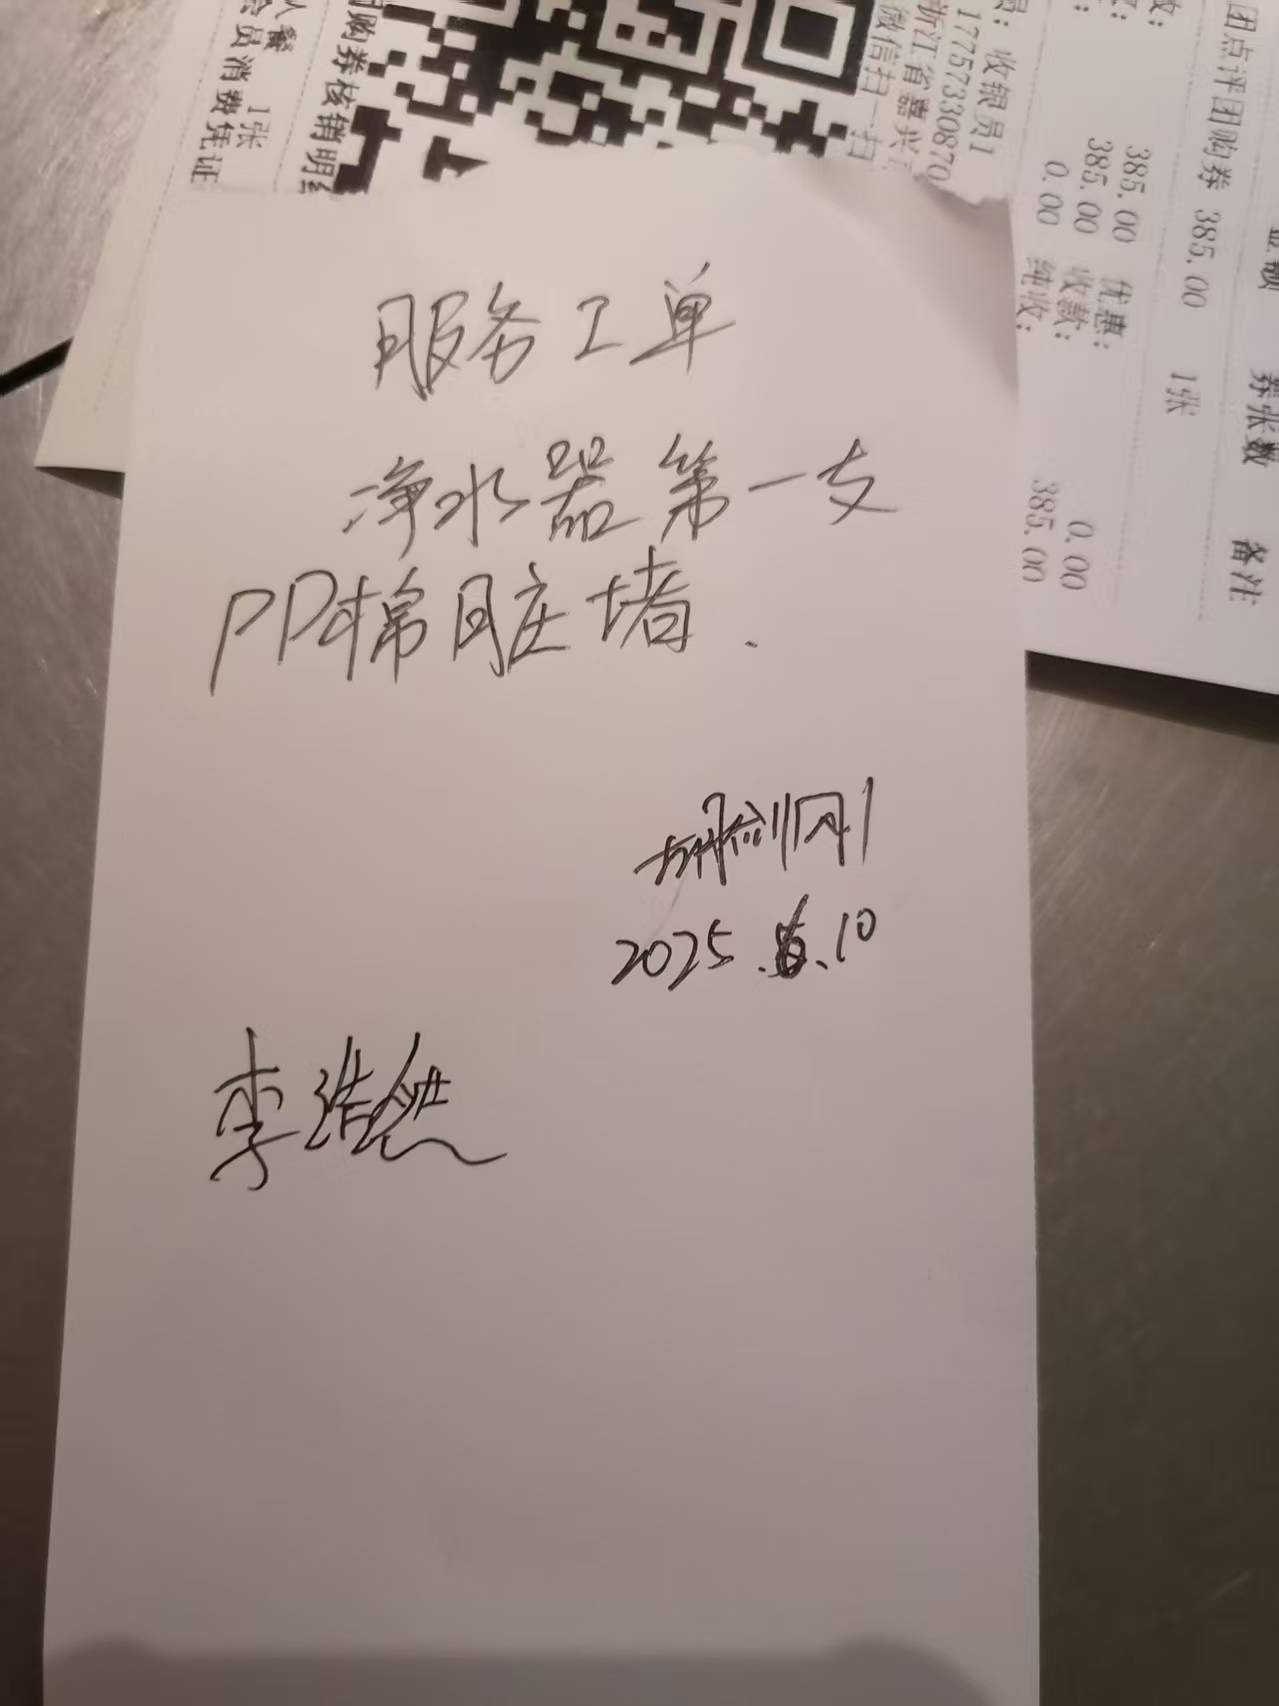 服务工单
净水器第一支
PP棉脏堵.
胡剑刚
2025.6.10
李浩然
人餐 1张
会员消费凭证
团购券核销明
收银员1
17757330870
浙江省嘉兴
微信扫一扫
团点评团购券 385.00 1张
券张数 备注
385.00 优惠: 0.00
385.00 收款: 385.00
0.00 纯收: